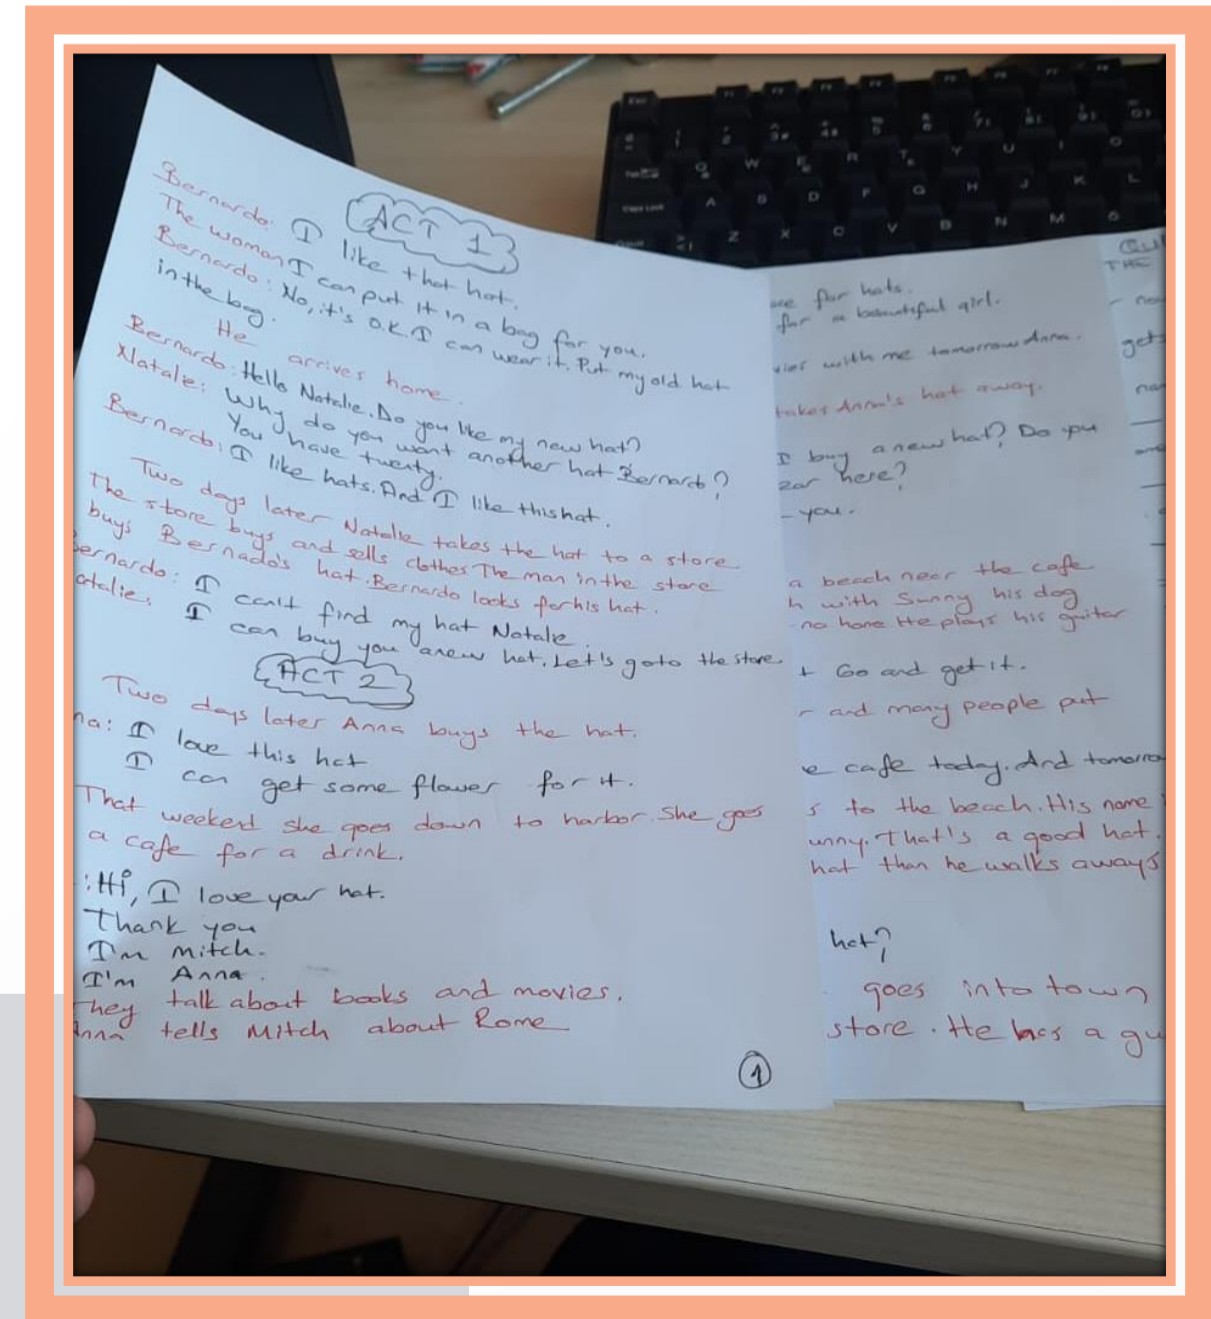 ACT 1
Bernardo: I like that hat.
The woman I can put it in a bag for you.
Bernardo: No, it's O.K. I can wear it. Put my old hat
in the bag.
He arrives home.
Bernardo: Hello Natalie. Do you like my new hat?
Natalie: Why do you want another hat Bernardo?
You have twenty.
Bernardo: I like hats. And I like this hat.
Two days later Natalie takes the hat to a store
The store buys and sells clothes The man in the store
buys Bernado's hat. Bernardo looks for his hat.
ernardo: I can't find my hat Natalie.
atalie: I can buy you a new hat. Let's go to the store.
ACT 2
Two days later Anna buys the hat.
na: I love this hat
I can get some flower for it.
That weekend she goes down to harbor. She goes
a cafe for a drink.
: Hi, I love your hat.
Thank you
I'm mitch.
I'm Anna.
They talk about books and movies.
Anna tells Mitch about Rome
1
for hats.
for a beautiful girl.
with me tomorrow Anna.
takes Anna's hat away.
I buy a new hat? Do you
here?
you.
a beach near the cafe
h with Sunny his dog
no home He plays his guitar
t Go and get it.
r and many people put
e cafe today. And tomorro
s to the beach. His name
unny. That's a good hat.
hat than he walks aways
hat?
goes into town
store. He has a gu
THE
gets